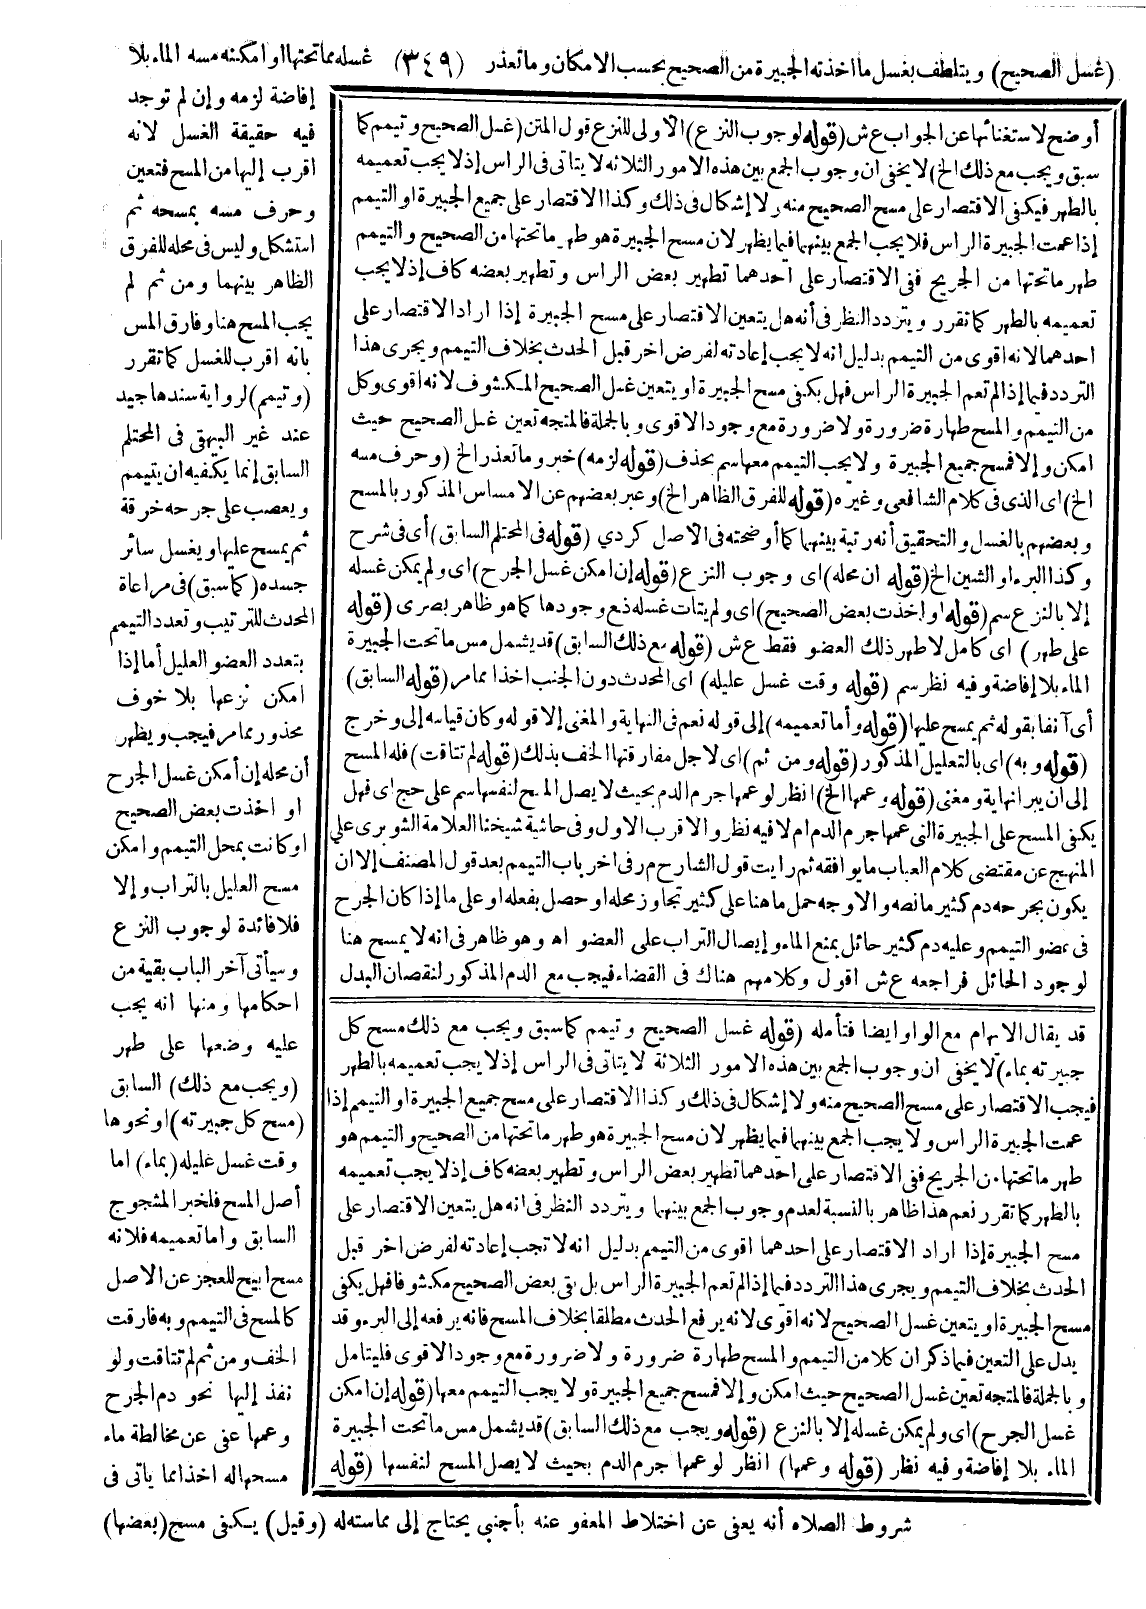 (غسل الصحيح) ويتلطف بغسل ما اخذته الجبيرة من الصحيح بحسب الامكان وما تعذر (٣٤٩) غسله مما تحتها او امكنه مسه الماء بلا
إفاضة لزمه وإن لم توجد
فيه حقيقة الغسل لانه
اقرب إليها من المسح فتعين
وحرف مسه بمسحه ثم
استشكل وليس فى محله للفرق
الظاهر بينهما ومن ثم لم
يجب المسح هنا وفارق المس
بانه اقرب للغسل كما تقرر
(وتيمم) لرواية سندها جيد
عند غير البيهقى فى المحتلم
السابق إنما يكفيه ان يتيمم
ويعصب على جرحه خرقة
ثم يمسح عليها ويغسل سائر
جسده (كما سبق) فى مراعاة
المحدث للترتيب وتعدد التيمم
بتعدد العضو العليل أما إذا
امكن نزعها بلا خوف
محذور مما مر فيجب ويظهر
أن محله إن أمكن غسل الجرح
او اخذت بعض الصحيح
او كانت بمحل التيمم وامكن
مسح العليل بالتراب وإلا
فلا فائدة لوجوب النزع
وسيأتى آخر الباب بقية من
احكامها ومنها انه يجب
عليه وضعها على طهر
(ويجب مع ذلك) السابق
(مسح كل جبيرته) او نحوها
وقت غسل عليله (بماء) اما
أصل المسح فلخبر المشجوج
السابق واما تعميمه فلانه
مسح ابيح للعجز عن الاصل
كالمسح فى التيمم وبه فارقت
الخف ومن ثم لم تتاقت ولو
نفذ إليها نحو دم الجرح
وعمها عفى عن مخالطة ماء
مسحها له اخذا مما ياتى فى
شروط الصلاه أنه يعفى عن اختلاط المعفو عنه بأجنبي يحتاج إلى مماسته له (وقيل) يكفى مسح (بعضها)
أوضح لاستغنائها عن الجواب ع ش (قوله لوجوب النزع) الاولى للنزع قول المتن (غسل الصحيح وتيمم كما
سبق ويجب مع ذلك الخ) لا يخفى ان وجوب الجمع بين هذه الامور الثلاثه لا يتاتى فى الراس إذ لا يجب تعميمه
بالطهر فيكفى الاقتصار على مسح الصحيح منه ولا إشكال فى ذلك وكذا الاقتصار على جميع الجبيرة او التيمم
إذا عمت الجبيرة الراس فلا يجب الجمع بينهما فيما يظهر لان مسح الجبيرة هو طهر ما تحتها من الصحيح والتيمم
طهر ما تحتها من الجريح ففى الاقتصار على احدهما تطهير بعض الراس وتطهير بعضه كاف إذ لا يجب
تعميمه بالطهر كما تقرر ويتردد النظر فى أنه هل يتعين الاقتصار على مسح الجبيرة إذا اراد الاقتصار على
احدهما لانه اقوى من التيمم بدليل انه لا يجب إعادته لفرض اخر قبل الحدث بخلاف التيمم ويجرى هذا
التردد فيما إذا لم تعم الجبيرة الراس فهل يكفى مسح الجبيرة او يتعين غسل الصحيح المكشوف لانه اقوى وكل
من التيمم والمسح طهارة ضرورة ولا ضرورة مع وجود الاقوى وبالجملة فالمتجه تعين غسل الصحيح حيث
امكن وإلا فمسح جميع الجبيرة ولا يجب التيمم معها سم بحذف (قوله لزمه) خبر وما تعذر الخ (وحرف مسه
الخ) اى الذى فى كلام الشافعى وغيره (قوله للفرق الظاهر الخ) وعبر بعضهم عن الامساس المذكور بالمسح
وبعضهم بالغسل والتحقيق أنه رتبة بينهما كما أوضحته فى الاصل كردي (قوله فى المحتلم السابق) أى فى شرح
وكذا البرء او الشين الخ (قوله ان محله) اى وجوب النزع (قوله إن امكن غسل الجرح) اى ولم يمكن غسله
إلا بالنزع سم (قوله او اخذت بعض الصحيح) اى ولم يتات غسله مع وجودها كما هو ظاهر بصرى (قوله
على طهر) اى كامل لا طهر ذلك العضو فقط ع ش (قوله مع ذلك السابق) قد يشمل مس ما تحت الجبيرة
الماء بلا إفاضة وفيه نظر سم (قوله وقت غسل عليله) اى المحدث دون الجنب اخذا مما مر (قوله السابق)
أى آنفا بقوله ثم يمسح عليها (قوله وأما تعميمه) إلى قوله نعم فى النهاية والمغنى إلا قوله وكان قياسه إلى وخرج
(قوله وبه) اى بالتعليل المذكور (قوله ومن ثم) اى لاجل مفارقتها الخف بذلك (قوله لم تتاقت) فله المسح
إلى أن يبرا نهاية ومغنى (قوله وعمها الخ) انظر لو عمها جرم الدم بحيث لا يصل المسح لنفسها سم على حج اى فهل
يكفى المسح على الجبيرة التى عمها جرم الدم ام لا فيه نظر والاقرب الاول وفى حاشية شيخنا العلامة الشوبرى على
المنهج عن مقتضى كلام العباب ما يوافقه ثم رايت قول الشارح م ر فى اخر باب التيمم بعد قول المصنف إلا ان
يكون بجرحه دم كثير ما نصه والاوجه حمل ما هنا على كثير تجاوز محله او حصل بفعله او على ما إذا كان الجرح
فى عضو التيمم وعليه دم كثير حائل يمنع الماء وإيصال التراب على العضو اه وهو ظاهر فى انه لا يمسح هنا
لوجود الحائل فراجعه ع ش اقول وكلامهم هناك فى القضاء فيجب مع الدم المذكور لنقصان البدل
قد يقال الابهام مع الواو ايضا فتأمله (قوله غسل الصحيح وتيمم كما سبق ويجب مع ذلك مسح كل
جبيرته بماء) لا يخفى ان وجوب الجمع بين هذه الامور الثلاثة لا يتاتى فى الراس إذ لا يجب تعميمه بالطهر
فيجب الاقتصار على مسح الصحيح منه ولا إشكال فى ذلك وكذا الاقتصار على مسح جميع الجبيرة او التيمم إذا
عمت الجبيرة الراس ولا يجب الجمع بينهما فيما يظهر لان مسح الجبيرة هو طهر ما تحتها من الصحيح والتيمم هو
طهر ما تحتها من الجريح ففى الاقتصار على احدهما تطهير بعض الراس وتطهير بعضه كاف إذ لا يجب تعميمه
بالطهر كما تقرر نعم هذا ظاهر بالنسبة لعدم وجوب الجمع بينهما ويتردد النظر فى انه هل يتعين الاقتصار على
مسح الجبيرة إذا اراد الاقتصار على احدهما اقوى من التيمم بدليل انه لا تجب إعادته لفرض اخر قبل
الحدث بخلاف التيمم ويجرى هذا التردد فيما إذا لم تعم الجبيرة الراس بل بقى بعض الصحيح مكشوفا فهل يكفى
مسح الجبيرة او يتعين غسل الصحيح لانه اقوى لانه يرفع الحدث مطلقا بخلاف المسح فانه يرفعه إلى البرء وقد
يدل على التعين فيما ذكر ان كلا من التيمم والمسح طهارة ضرورة ولا ضرورة مع وجود الاقوى فليتامل
وبالجملة فالمتجه تعين غسل الصحيح حيث امكن وإلا فمسح جميع الجبيرة ولا يجب التيمم معها (قوله إن امكن
غسل الجرح) اى ولم يمكن غسله إلا بالنزع (قوله ويجب مع ذلك السابق) قد يشمل مس ما تحت الجبيرة
الماء بلا إفاضة وفيه نظر (قوله وعمها) انظر لو عمها جرم الدم بحيث لا يصل المسح لنفسها (قوله